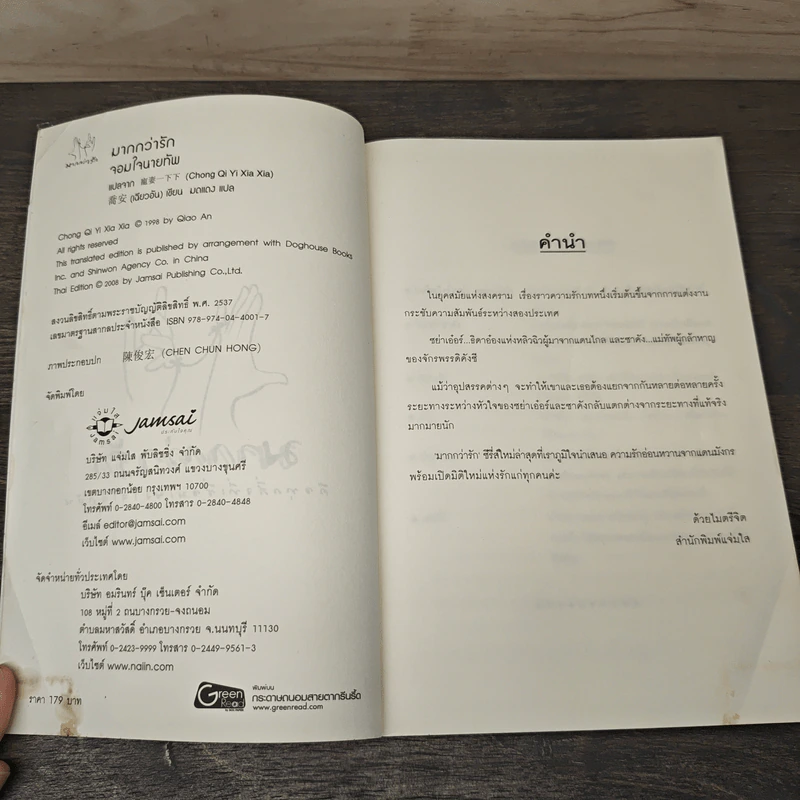 มากกว่ารัก
มากกว่ารัก
จอมใจนายทัพ
แปลจาก 寵妻一下下 (Chong Qi Yi Xia Xia)
喬安 (เฉียวอัน) เขียน มดแดง แปล
Chong Qi Yi Xia Xia © 1998 by Qiao An
All rights reserved
This translated edition is published by arrangement with Doghouse Books
Inc. and Shinwon Agency Co. in China
Thai Edition © 2008 by Jamsai Publishing Co.,Ltd.
สงวนลิขสิทธิ์ตามพระราชบัญญัติลิขสิทธิ์ พ.ศ. 2537
เลขมาตรฐานสากลประจำหนังสือ ISBN 978-974-04-4001-7
ภาพประกอบปก 陳俊宏 (CHEN CHUN HONG)
จัดพิมพ์โดย
แจ่มใส
jamsai
jamsai
บริษัท แจ่มใส พับลิชชิ่ง จำกัด
285/33 ถนนจรัญสนิทวงศ์ แขวงบางขุนศรี
เขตบางกอกน้อย กรุงเทพฯ 10700
โทรศัพท์ 0-2840-4800 โทรสาร 0-2840-4848
อีเมล์ editor@jamsai.com
เว็บไซต์ www.jamsai.com
จัดจำหน่ายทั่วประเทศโดย
บริษัท อมรินทร์ บุ๊ค เซ็นเตอร์ จำกัด
108 หมู่ที่ 2 ถนบางกรวย-จงถนอม
ตำบลมหาสวัสดิ์ อำเภอบางกรวย จ.นนทบุรี 11130
โทรศัพท์ 0-2423-9999 โทรสาร 0-2449-9561-3
เว็บไซต์ www.naiin.com
ราคา 179 บาท
Green
Read
พิมพ์บน
กระดาษถนอมสายตากรีนรี้ด
www.greenread.com
คำนำ
ในยุคสมัยแห่งสงคราม เรื่องราวความรักบทหนึ่งเริ่มต้นขึ้นจากการแต่งงาน
กระชับความสัมพันธ์ระหว่างสองประเทศ
ซย่าเอ๋อร์...ธิดาอ๋องแห่งหลิวฉิวผู้มาจากแดนไกล และซาคัง...แม่ทัพผู้กล้าหาญ
ของจักรพรรดิคังซี
แม้ว่าอุปสรรคต่างๆ จะทำให้เขาและเธอต้องแยกจากกันหลายต่อหลายครั้ง
ระยะทางระหว่างหัวใจของซย่าเอ๋อร์และซาคังกลับแตกต่างจากระยะทางที่แท้จริง
มากมายนัก
'มากกว่ารัก' ซีรี่ส์ใหม่ล่าสุดที่เราภูมิใจนำเสนอ ความรักอ่อนหวานจากแดนมังกร
พร้อมเปิดมิติใหม่แห่งรักแก่ทุกคนค่ะ
ด้วยไมตรีจิต
สำนักพิมพ์แจ่มใส